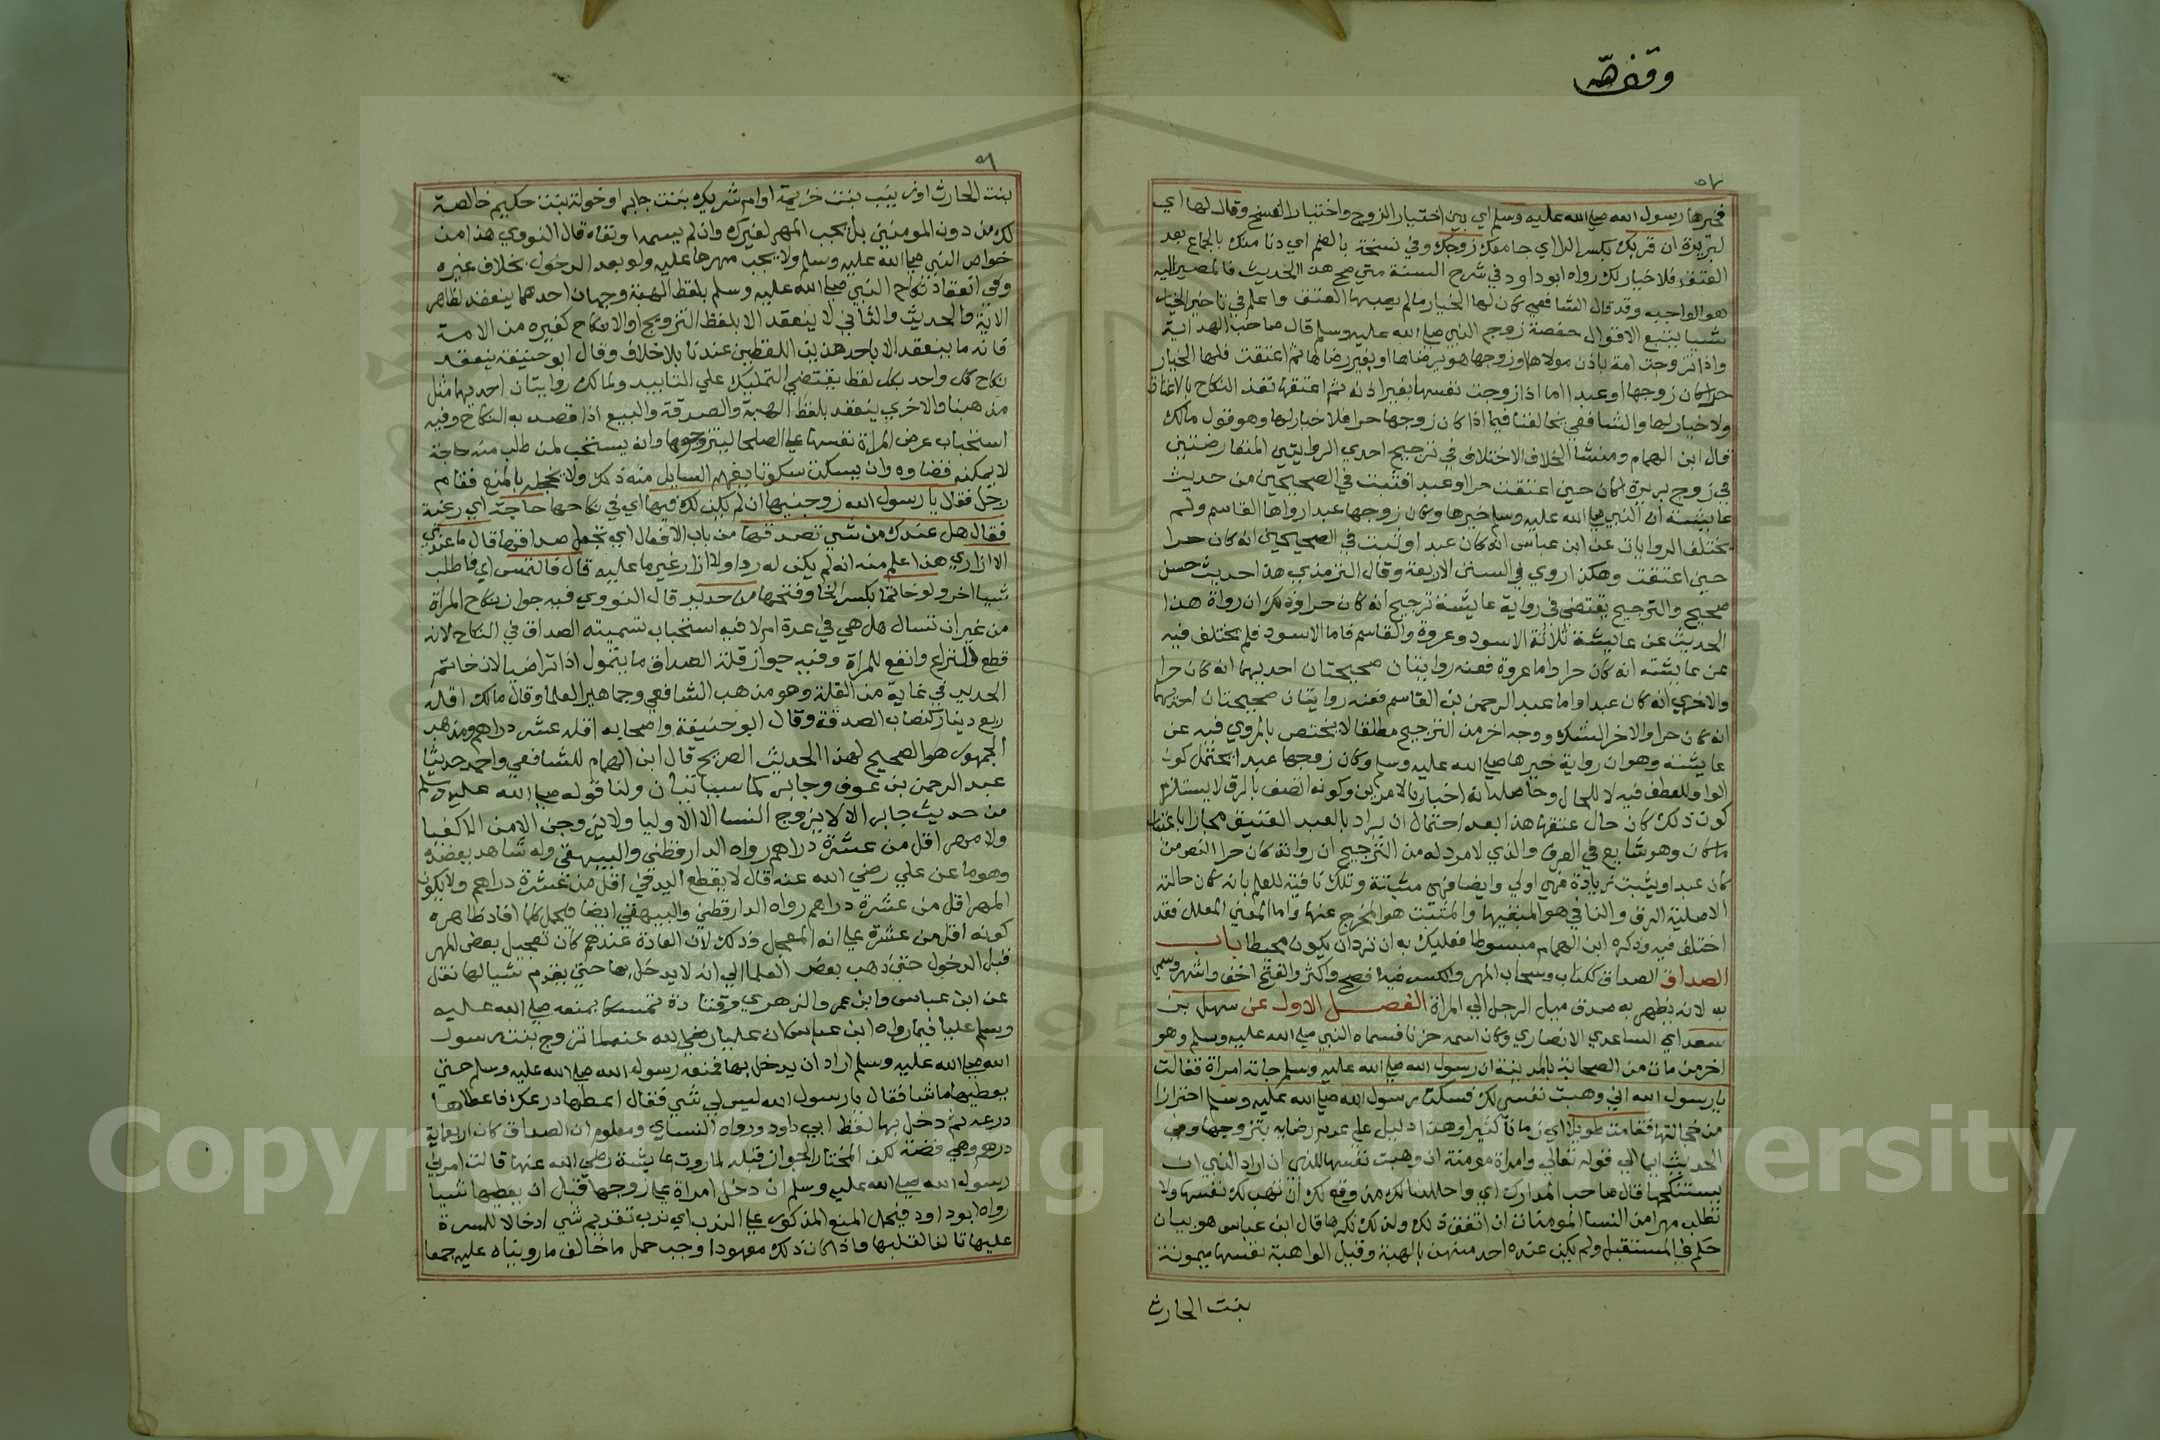 وقف لله
فخيرها رسول الله صلي الله عليه وسلم اي بين اختيار الزوج واختيار الفسخ وقال لها اي
لبريرة ان قربك بكسر الراء اي جامعك زوجك وفي نسخة بالضم اي دنا منك بالجماع بعد
العتق فلا خيار لك رواه ابو داود في شرح السنة متي صح هذا الحديث فالمصير اليه
هو الواجب وقد قال الشافعي كان لها الخيار ما لم يصبها العتق واعلم في تاخير الخيار
شيا يتبع الاقوال حفصة زوج النبي صلي الله عليه وسلم قال صاحب الهداية
واذا تزوجت امة باذن مولاها او زوجها هو برضاها او بغير رضاها ثم اعتقت فلها الخيار
حرا كان زوجها او عبدا اما اذا زوجت نفسها بغير اذنه ثم اعتقها نفذ النكاح بالاعتاق
ولا خيار لها والشافعي يخالفنا فيما اذا كان زوجها حرا فلا خيار لها وهو قول مالك
قال ابن الهمام ومنشا الخلاف الاختلاف في ترجيح احدي الروايتين المتعارضتين
في زوج بريرة اكان حين اعتقت حرا او عبدا فثبت في الصحيحين من حديث
عايشة ان النبي صلي الله عليه وسلم خيرها وكان زوجها عبدا رواها القاسم ولم
تختلف الروايات عن ابن عباس انه كان عبدا وثبت في الصحيحين انه كان حرا
حين اعتقت وهكذا روي في السنن الاربعة وقال الترمذي هذا حديث حسن
صحيح والترجيح يقتضي في رواية عايشة ترجيح انه كان حرا وذلك ان رواة هذا
الحديث عن عايشة ثلاثة الاسود وعروة والقاسم فاما الاسود فلم يختلف فيه
عن عايشة انه كان حرا واما عروة فعنه روايتان صحيحتان احديهما انه كان حرا
والاخري انه كان عبدا واما عبد الرحمن بن القاسم فعنه روايتان صحيحتان احديهما
انه كان حرا والاخر الشك ووجه اخر من الترجيح مطلقا لا يختص بالمروي فيه عن
عايشة وهو ان رواية خيرها صلي الله عليه وسلم وكان زوجها عبدا يحتمل كون
الواو للعطف فيه لا للحال وحاصله انه اخبار بالامرين وكونه اتصف بالرق لا يستلزم
كون ذلك كان حال عتقها هذا بعد احتمال ان يراد بالعبد العتيق مجازا باعتبار
ما كان وهو شايع في العرف والذي لا مرد له من الترجيح ان رواية كان حرا انص من
كان عبدا ويثبت زيادة فهي اولي وايضا فهي مثبتة وتلك نافية للعلم بانه كان حالته
الاصلية الرق والنافي هو المبقيها والمثبت هو المخرج عنها واما المعني المعلل فقد
اختلف فيه وذكره ابن الهمام مبسوطا فعليك به ان تردان يكون محيطا باب
الصداق الصداق ككتاب وسحاب المهر والكسر فيه افصح واكثر والفتح اخف واشهر وسمي
به لانه يظهر به صدق ميل الرجل الي المراة الفصل الاول عن سهيل بن
سعد اي الساعدي الانصاري وكان اسمه حزنا فسماه النبي صلي الله عليه وسلم وهو
اخر من مات من الصحابة بالمدينة ان رسول الله صلي الله عليه وسلم جاته امراة فقالت
يا رسول الله اني وهبت نفسي لك فسكت رسول الله صلي الله عليه وسلم احترازا
من خجالتها فقامت طويلا اي زمانا كثيرا وهذا دليل علي عدم رضايه بتزوجها وفي
الحديث ايما الي قوله تعالي وامراة مومنة ان وهبت نفسها للنبي ان اراد النبي ان
يستنكحها قال صاحب المدارك اي واحللنا لك من وقع لك ان تهب لك نفسها ولا
تطلب مهرا من النسا المومنات ان اتفق ذلك ولذلك نكرها قال ابن عباس هو بيان
حكم في المستقبل ولم يكن عنده احد منهن بالهبة وقيل الواهبة نفسها ميمونة
بنت الحارث
بنت الحارث او زينب بنت خزيمة او ام شريك بنت جابر او خولة بنت حكيم خالصة
لك من دون المومنين بل يجب المهر لغيرك وان لم يسمه او نفاه قال النووي هذا من
خواص النبي صلي الله عليه وسلم ولا يجب مهرها عليه ولو بعد الدخول بخلاف غيره
وفي انعقاد نكاح النبي صلي الله عليه وسلم بلفظ الهبة وجهان احدهما ينعقد لظاهر
الاية والحديث والثاني لا ينعقد الا بلفظ التزويج او الانكاح كغيره من الامة
فانه ما ينعقد الا باحد هذين اللفظين عندنا بلا خلاف وقال ابو حنيفة ينعقد
نكاح كل واحد بكل لفظ يقتضي التمليك علي التابيد ولمالك روايتان احديهما مثل
مذهبنا والاخري ينعقد بلفظ الهبة والصدقة والبيع اذا قصد به النكاح وفيه
استحباب عرض المراة نفسها علي الصلحا ليتزوجوها وانه يستحب لمن طلب منه حاجة
لا يمكنه قضاوه وان يسكت سكوتا يفهم السايل منه ذلك ولا يخجله بالمنع فقام
رجل فقال يا رسول الله زوجنيها ان لم يكن لك فيها اي في نكاحها حاجة اي رغبة
فقال هل عندك من شي تصدقها من باب الافعال اي تجعل صداقها قال ما عندي
الا ازاري هذا علم منه انه لم يكن له رداء ولا ازار غير ما عليه قال فالتمس اي فاطلب
شيا اخر ولو خاتما بكسر التاء وفتحها من حديد قال النووي فيه جواز نكاح المراة
من غير ان تسال هل هي في عدة ام لا فيه استحباب تسميته الصداق في النكاح لانه
قطع للنزاع وانفع للمراة وفيه جواز قلة الصداق ما يتمول اذا تراضيا لان خاتم
الحديد في غاية من القلة وهو مذهب الشافعي وجماهير العلما وقال مالك اقله
ربع دينار كنصاب الصدقة وقال ابو حنيفة واصحابه اقله عشر دراهم ومذهب
الجمهور هو الصحيح لهذا الحديث الصريح قال ابن الهمام للشافعي واحمد حديثا
عبد الرحمن بن عوف وجابر كما سياتيان ولنا قوله صلي الله عليه وسلم
من حديث جابر الا لا يزوج النسا الا الاوليا ولا يزوجن الا من الاكفيا
ولا مهر اقل من عشرة دراهم رواه الدارقطني والبيهقي وله شاهد بعضده
وهو ما عن علي رضي الله عنه قال لا يقطع اليد في اقل من عشرة دراهم ولا يكون
المهر اقل من عشرة دراهم رواه الدارقطني والبيهقي ايضا فيحمل كلما افاد ظاهره
كونه اقل من عشرة علي انه المعجل وذلك لان العادة عندهم كان تعجيل بعض المهر
قبل الدخول حتي ذهب بعض العلما الي انه لا يدخل بها حتي يقدم شيا لها نقل
عن ابن عباس وابن عمر والزهري وقتادة تمسكا بمنعه صلي الله عليه
وسلم عليا فيما رواه ابن عباس ان عليا رضي الله عنهما لما تزوج بنت رسول
الله صلي الله عليه وسلم اراد ان يدخل بها فمنعه رسول الله صلي الله عليه وسلم حتي
يعطيها ما شا فقال يا رسول الله ليس لي شي فقال اعطها درعك فاعطاها
درعه ثم دخل بها لفظ ابي داود ورواه النساي ومعلوم ان الصداق كان اربعماية
درهم وهي فضة لكن المختار الجواز قبله لما روت عايشة رضي الله عنها قالت امرني
رسول الله صلي الله عليه وسلم ان دخل امراة علي زوجها قبل ان يعطيها شيا
رواه ابو داود فيحمل المنع المذكور علي الندب اي ندب تقديم شي ادخالا للمسرة
عليها تالفا لقلبها واذا كان ذلك معهودا وجب حمل ما خالف ما رويناه عليه جمعا